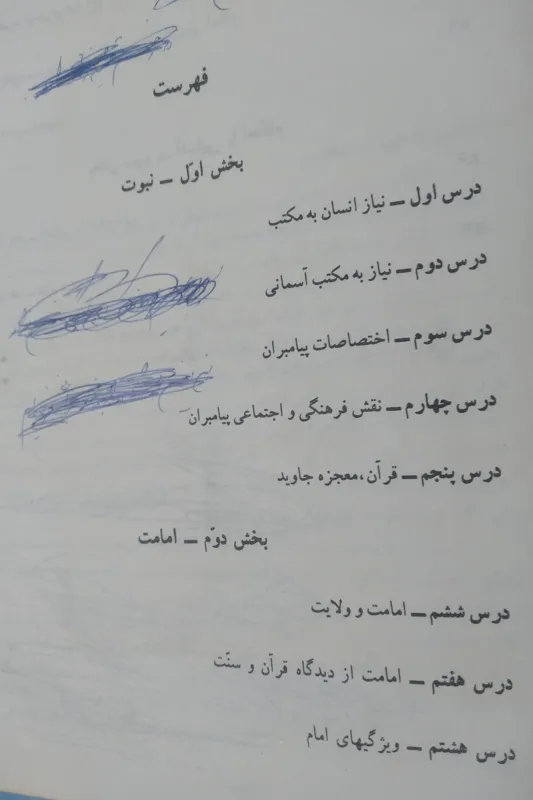 فهرست
بخش اوّل ــ نبوت
درس اول ــ نیاز انسان به مکتب
درس دوم ــ نیاز به مکتب آسمانی
درس سوم ــ اختصاصات پیامبران
درس چهارم ــ نقش فرهنگی و اجتماعی پیامبران
درس پنجم ــ قرآن ، معجزه جاوید
بخش دوّم ــ امامت
درس ششم ــ امامت و ولایت
درس هفتم ــ امامت از دیدگاه قرآن و سنّت
درس هشتم ــ ویژگیهای امام